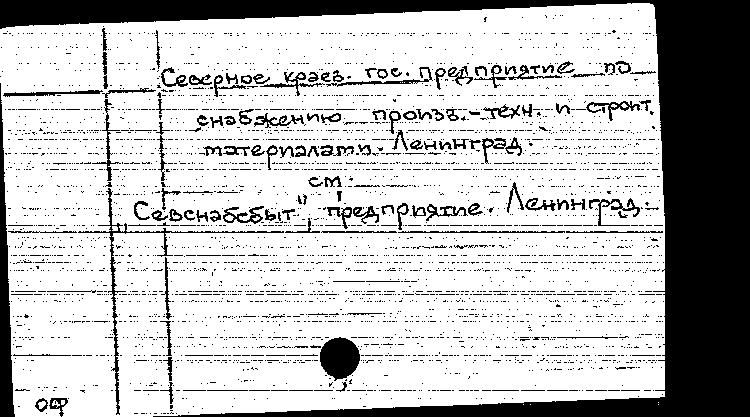 Северное краев. гос. предприятие по
снабжению произв.-техн. и строит.
материалами. Ленинград.
см.
"Севснабсбыт", предприятие. Ленинград.
ОФ